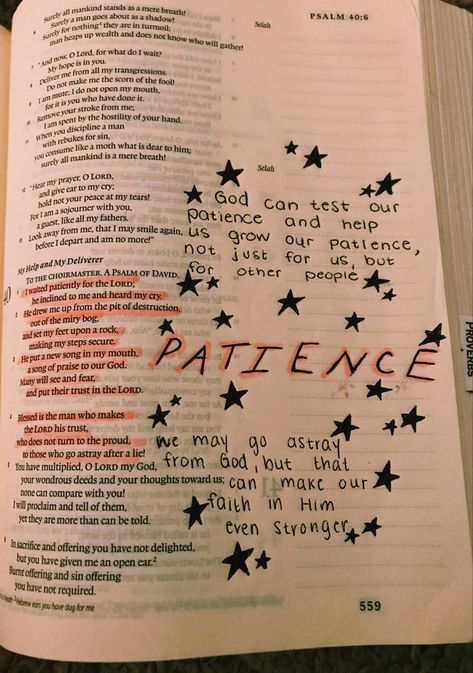 Surely all mankind stands as a mere breath!
Selah
Surely a man goes about as a shadow!
Surely for nothing they are in turmoil;
man heaps up wealth and does not know who will gather!
PSALM 40:6
7 "And now, O Lord, for what do I wait?
My hope is in you.
8 Deliver me from all my transgressions.
Do not make me the scorn of the fool!
9 I am mute; I do not open my mouth,
for it is you who have done it.
10 Remove your stroke from me;
I am spent by the hostility of your hand.
11 When you discipline a man
with rebukes for sin,
you consume like a moth what is dear to him;
surely all mankind is a mere breath!
Selah
12 "Hear my prayer, O LORD,
and give ear to my cry;
hold not your peace at my tears!
For I am a sojourner with you,
a guest, like all my fathers.
13 Look away from me, that I may smile again,
before I depart and am no more!"
My Help and My Deliverer
TO THE CHOIRMASTER. A PSALM OF DAVID.
40 I waited patiently for the LORD;
he inclined to me and heard my cry.
2 He drew me up from the pit of destruction,
out of the miry bog,
and set my feet upon a rock,
making my steps secure.
3 He put a new song in my mouth,
a song of praise to our God.
Many will see and fear,
and put their trust in the LORD.
4 Blessed is the man who makes
the LORD his trust,
who does not turn to the proud,
to those who go astray after a lie!
5 You have multiplied, O LORD my God,
your wondrous deeds and your thoughts toward us;
none can compare with you!
I will proclaim and tell of them,
yet they are more than can be told.
6 In sacrifice and offering you have not delighted,
but you have given me an open ear.2
Burnt offering and sin offering
you have not required.
Hebrew ears you have dug for me
God can test our
patience and help
us grow our patience,
not just for us, but
for other people
PATIENCE
we may go astray
from God, but that
can make our
faith in Him
even stronger
559
PROVERBS